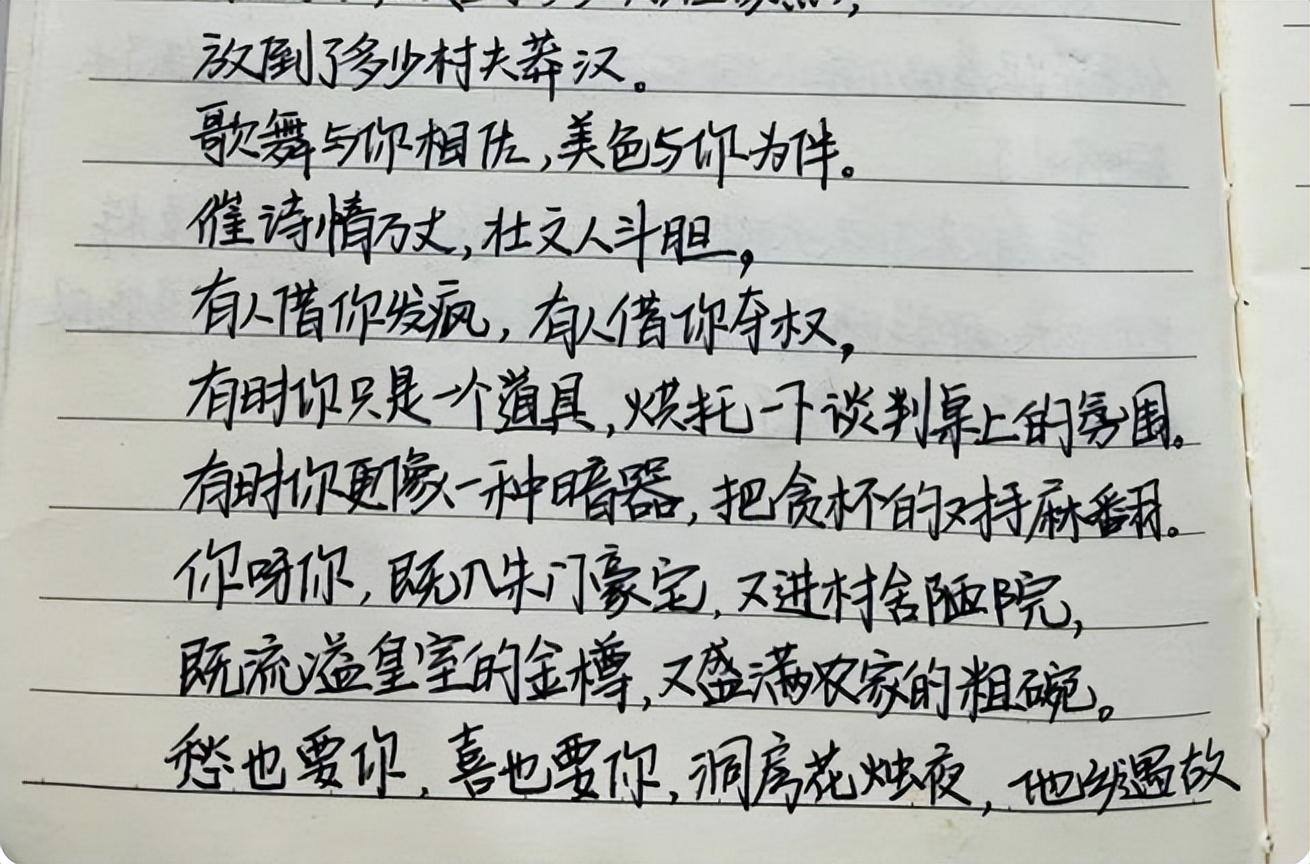 放倒了多少村夫莽汉。
歌舞与你相佐,美色与你为伴。
催诗情万丈,壮文人斗胆,
有人借你发疯,有人借你夺权,
有时你只是一个道具,烘托一下谈判桌上的氛围。
有时你更像一种暗器,把贪杯的对手麻翻。
你呀你,既入朱门豪宅,又进村舍陋院,
既流溢皇室的金樽,又盛满农家的粗碗。
愁也要你,喜也要你,洞房花烛夜,他乡遇故